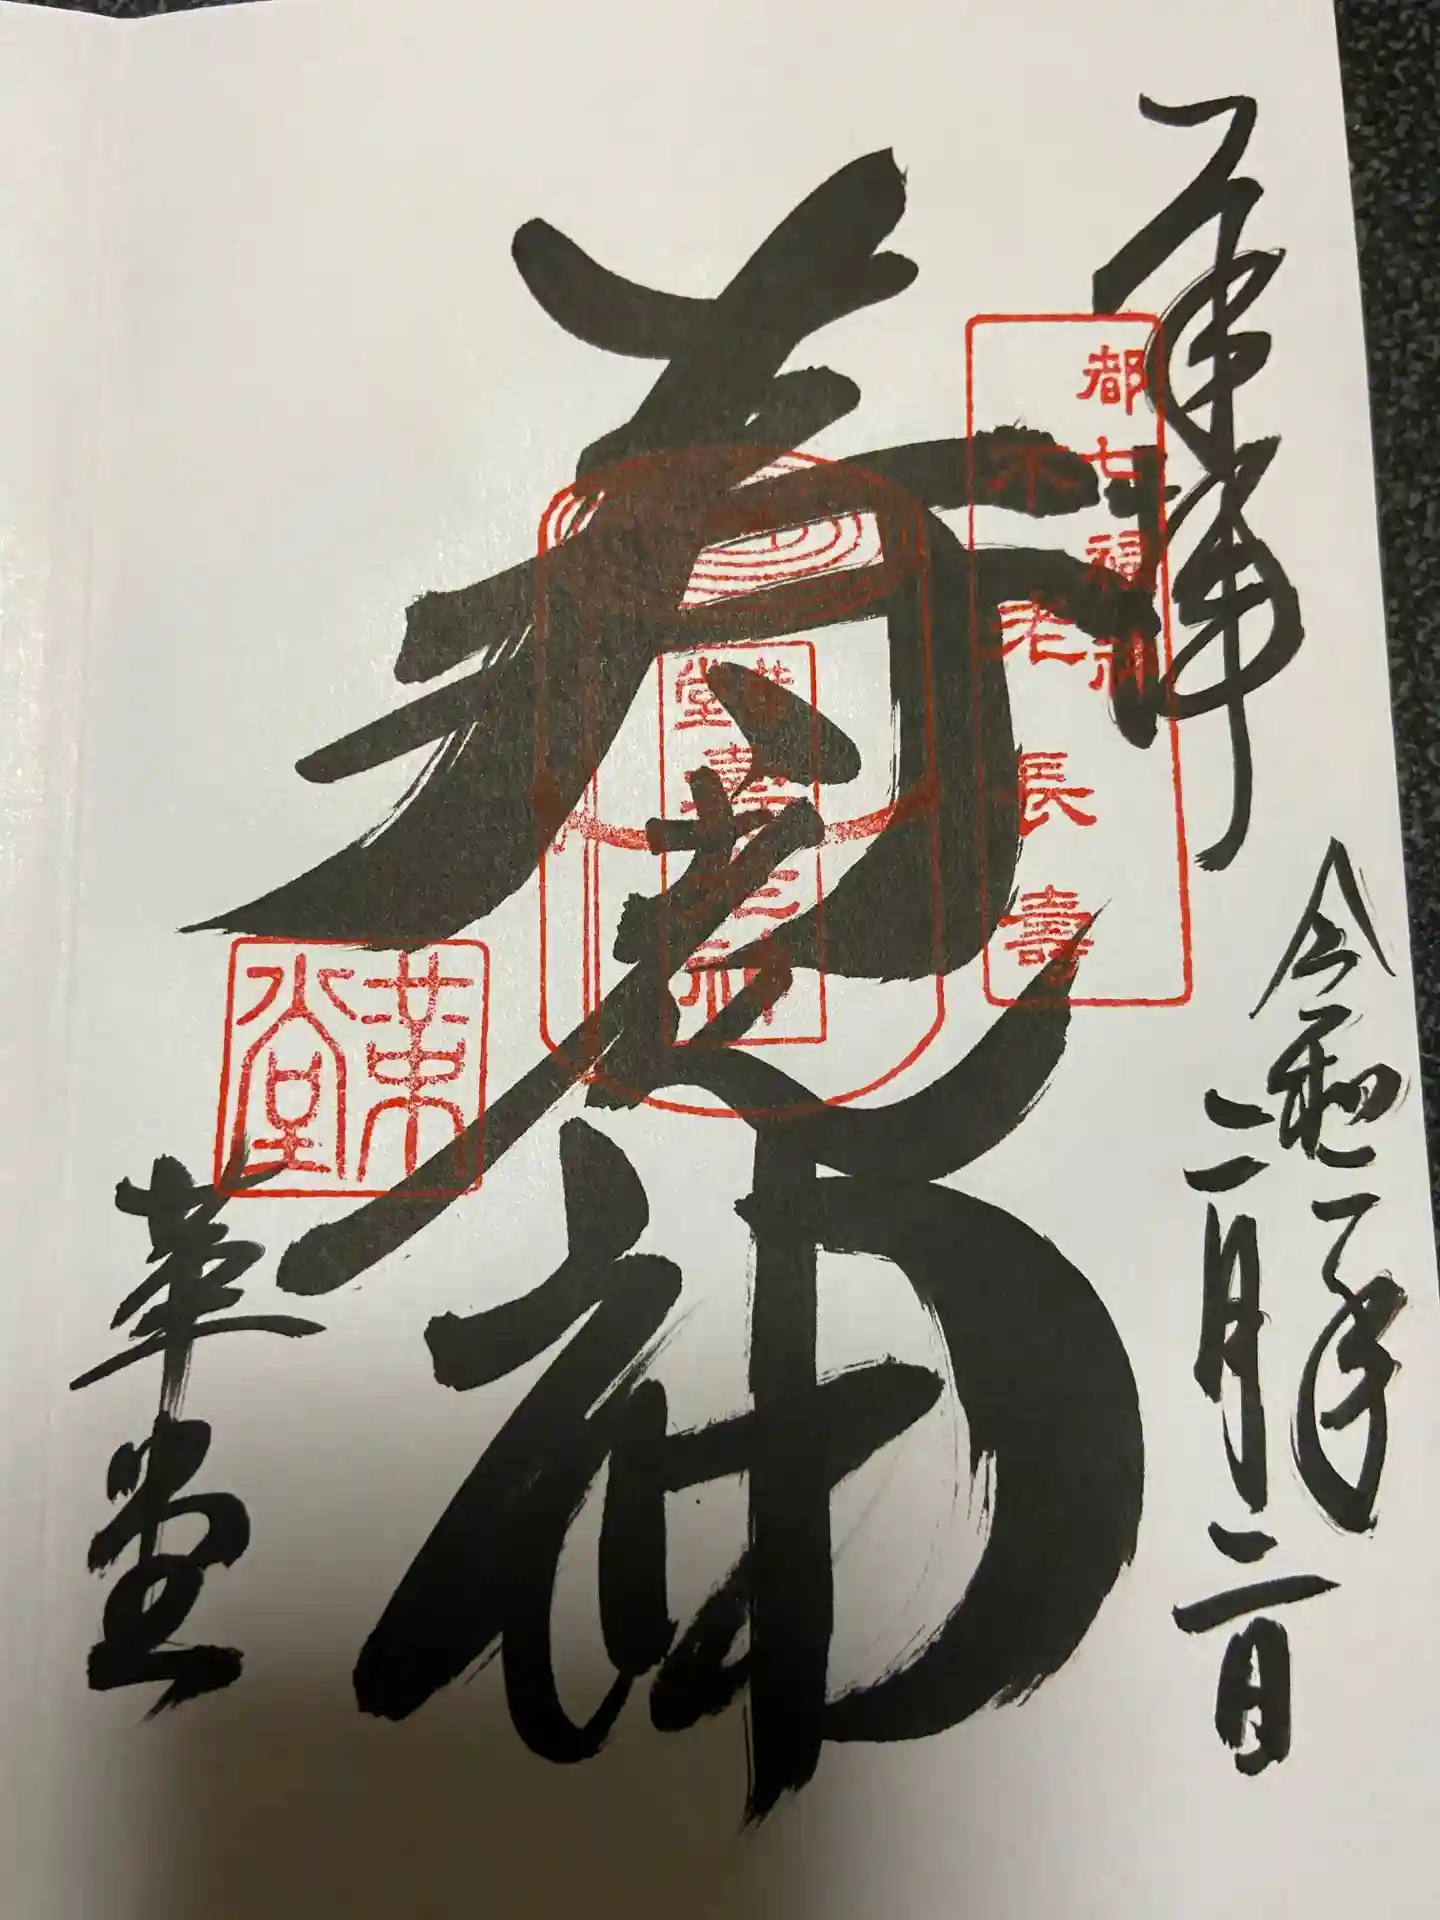 奉拝
令和二年
二月二日
都七福神
不老長壽
寿老神
革堂
壽老神
革堂
革堂